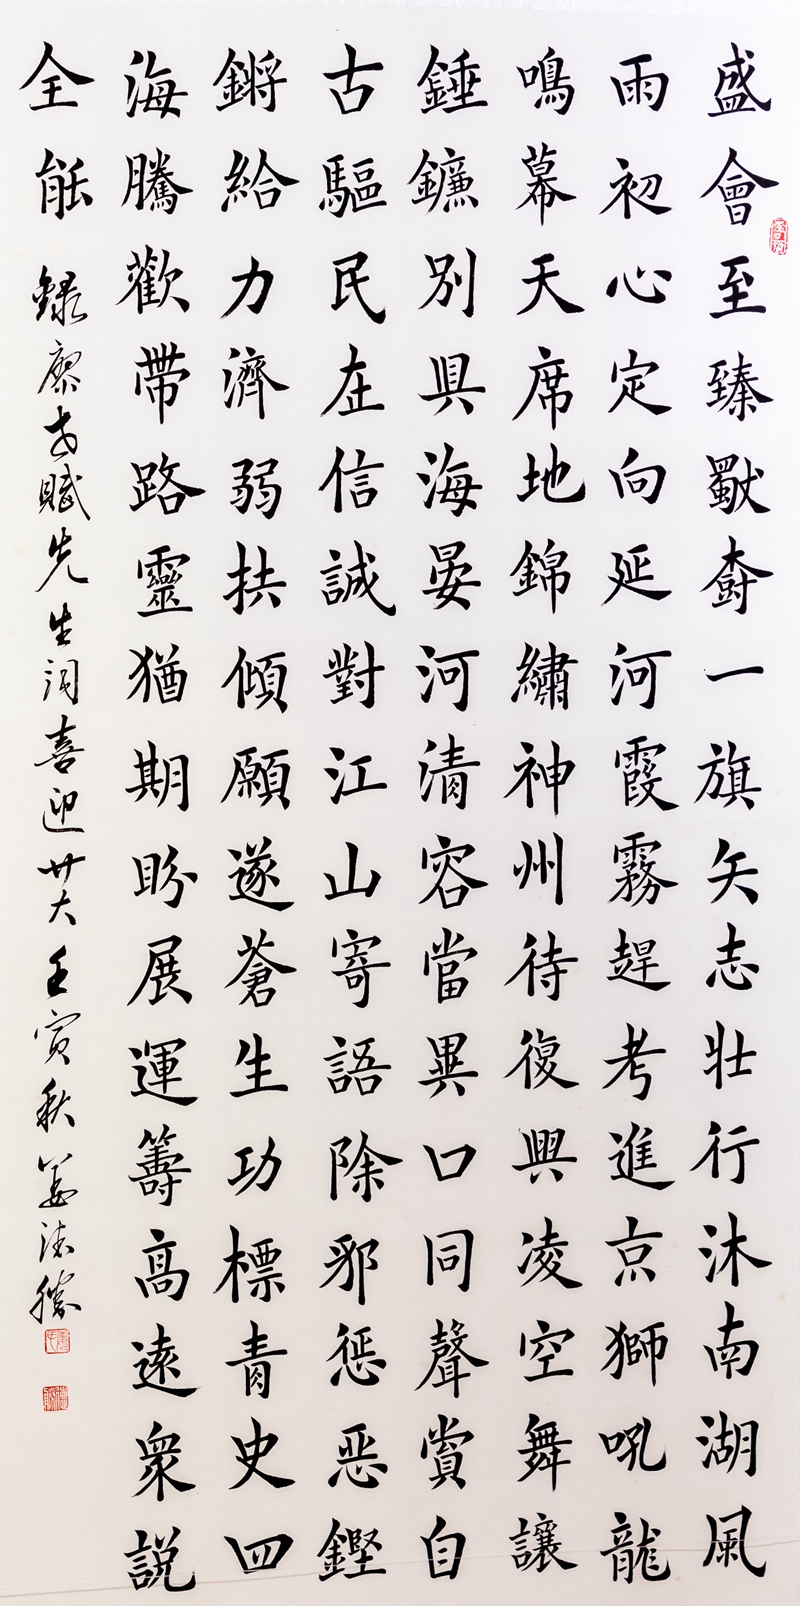 盛會至臻獻奝一旗矢志壯行沐南湖風
雨初心定向延河霞霧趕考進京獅吼龍
鳴幕天席地錦繡神州待復興凌空舞讓
錘鐮別具海晏河清容當異口同聲賞自
古驅民在信誠對江山寄語除邪惩恶鏗
鏘給力濟弱扶傾願遂蒼生功標青史四
海騰歡帶路靈猶期盼展運籌高遠衆説
全能 錄廖國賦先生詞喜迎廿大壬寅秋姜法勝